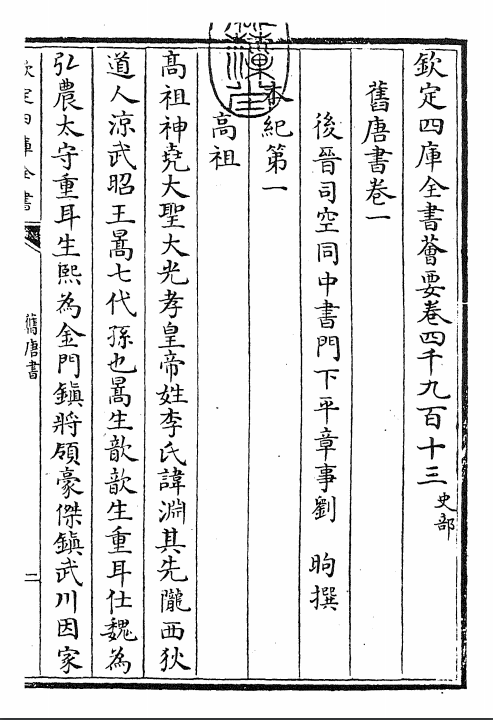 欽定四庫全書薈要卷四千九百十三 史部
舊唐書卷一
後晉司空同中書門下平章事劉 昫撰
本紀第一
高祖
高祖神堯大聖大光孝皇帝姓李氏諱淵其先隴西狄
道人涼武昭王暠七代孫也暠生歆歆生重耳仕魏為
弘農太守重耳生熙為金門鎮將領豪傑鎮武川因家
欽定四庫全書
舊唐書